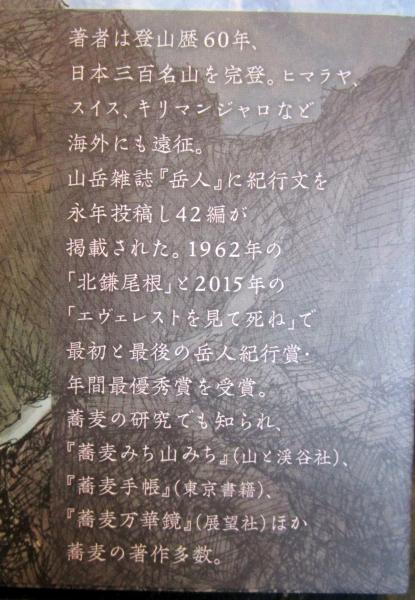 著者は登山歴60年、
日本三百名山を完登。ヒマラヤ、
スイス、キリマンジャロなど
海外にも遠征。
山岳雑誌『岳人』に紀行文を
永年投稿し42編が
掲載された。1962年の
「北鎌尾根」と2015年の
「エヴェレストを見て死ね」で
最初と最後の岳人紀行賞・
年間最優秀賞を受賞。
蕎麦の研究でも知られ、
『蕎麦みち山みち』(山と渓谷社)、
『蕎麦手帳』(東京書籍)、
『蕎麦万華鏡』(展望社)ほか
蕎麦の著作多数。